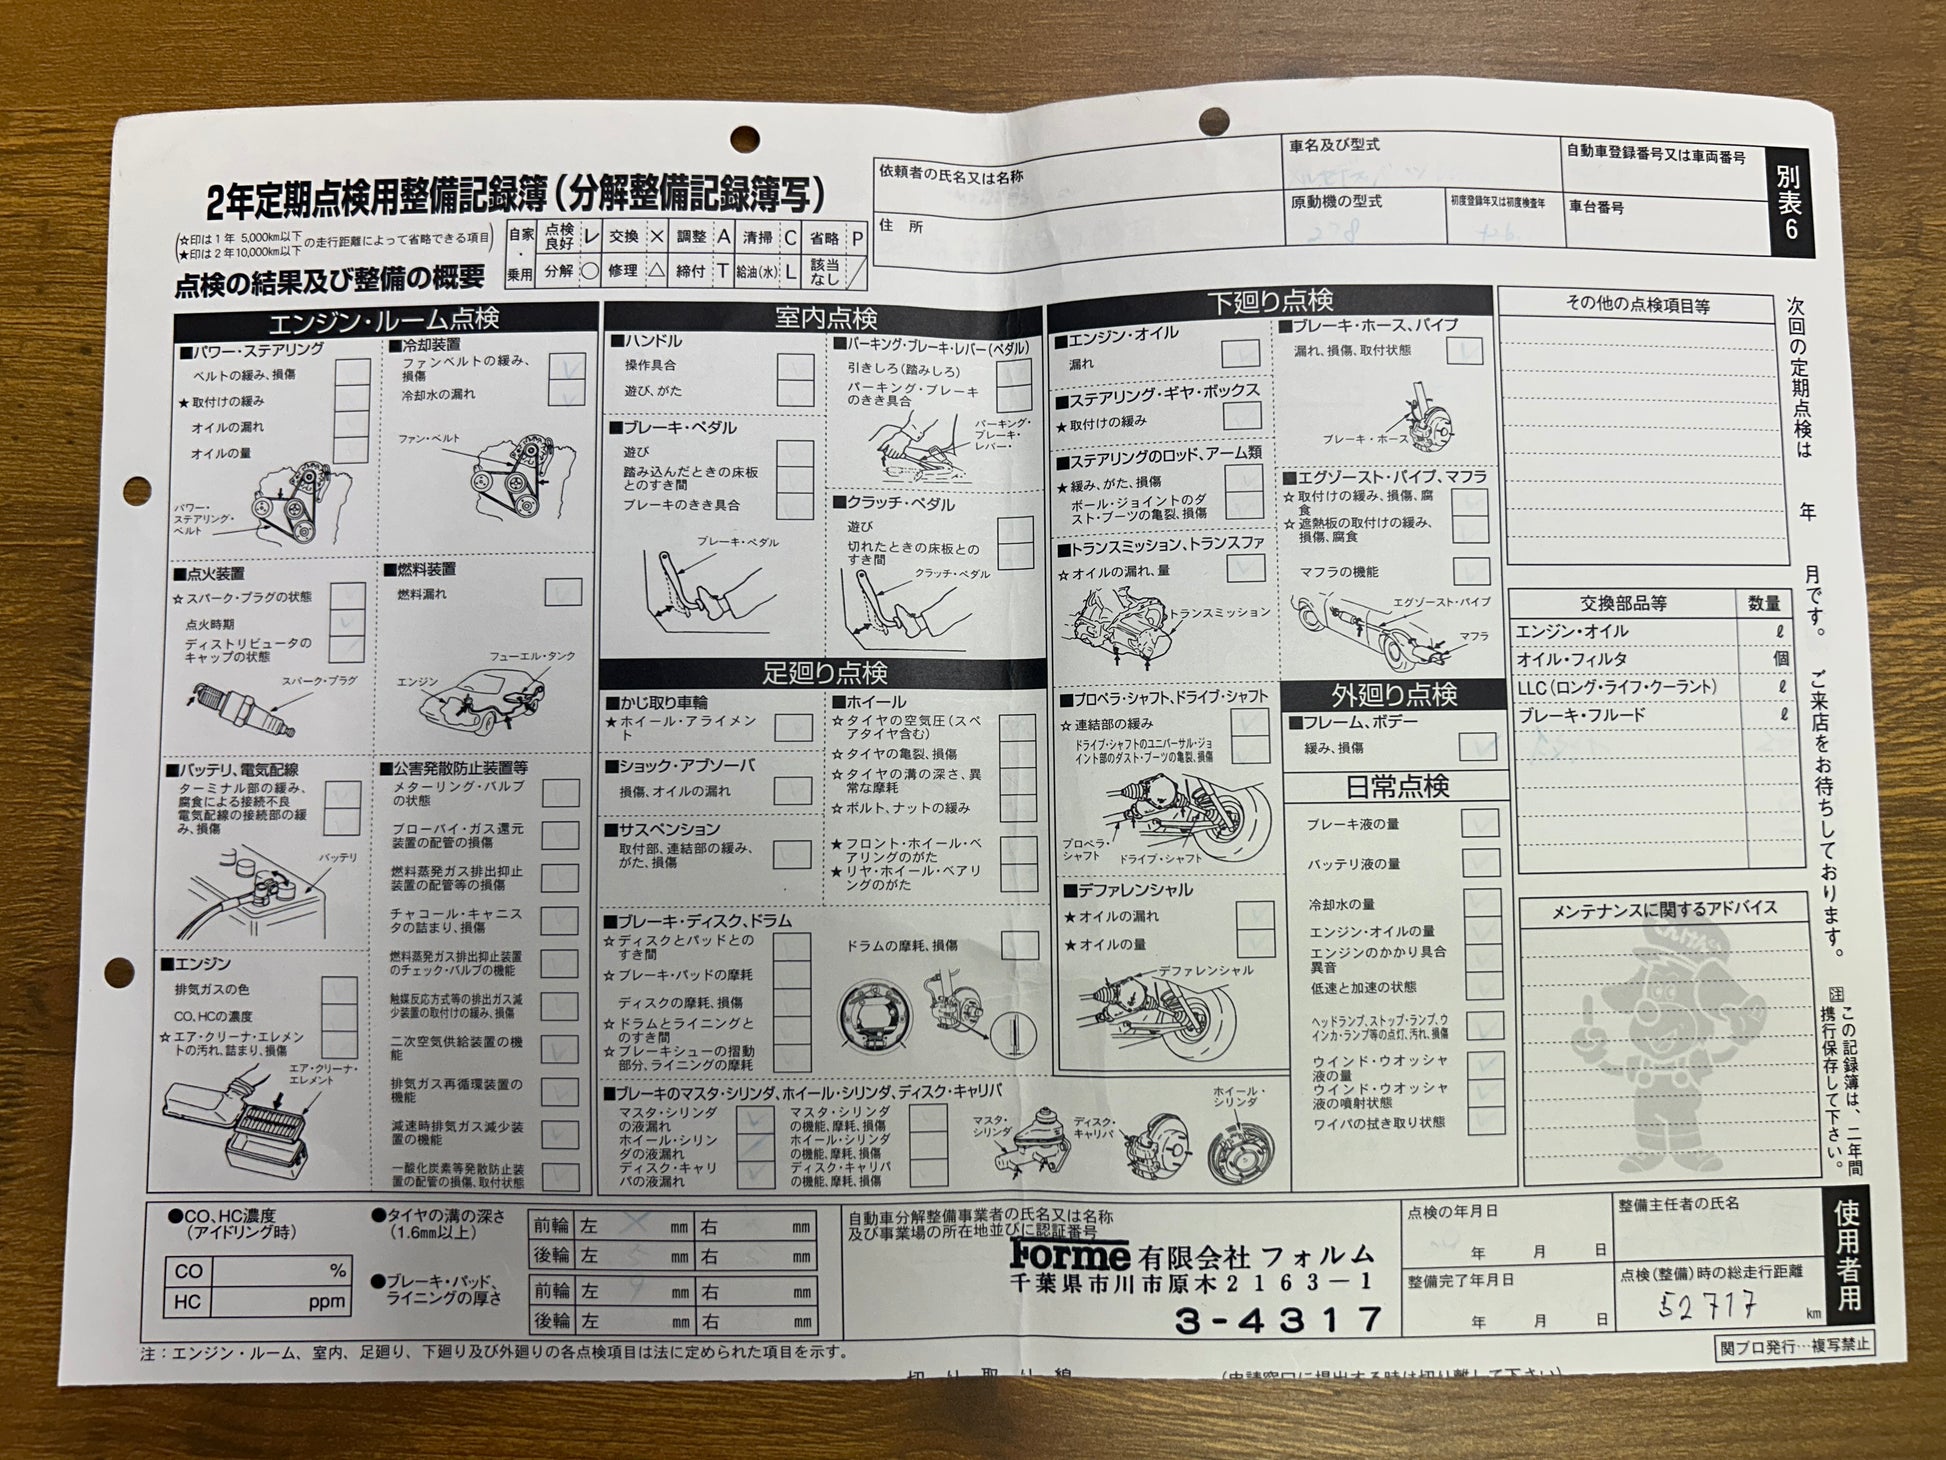 2年定期点検用整備記録簿(分解整備記録簿写)
(☆印は1年 5,000km以下
★印は2年10,000km以下
の走行距離によって省略できる項目)
点検の結果及び整備の概要
自家・乗用
点検良好 レ 交換 × 調整 A 清掃 C 省略 P
分解 ○ 修理 △ 締付 T 給油(水) L 該当なし ／
依頼者の氏名又は名称
住 所
車名及び型式
原動機の型式
278
初度登録年又は初度検査年
自動車登録番号又は車両番号
車台番号
別表6
エンジン・ルーム点検
■パワー・ステアリング
ベルトの緩み、損傷
★取付けの緩み
オイルの漏れ
オイルの量
パワー・
ステアリング・
ベルト
■冷却装置
ファンベルトの緩み、
損傷
冷却水の漏れ
ファン・ベルト
■点火装置
☆スパーク・プラグの状態
点火時期
ディストリビュータの
キャップの状態
スパーク・プラグ
■燃料装置
燃料漏れ
フューエル・タンク
エンジン
■バッテリ、電気配線
ターミナル部の緩み、
腐食による接続不良
電気配線の接続部の緩
み、損傷
バッテリ
■エンジン
排気ガスの色
CO、HCの濃度
☆エア・クリーナ・エレメン
トの汚れ、詰まり、損傷
エア・クリーナ・
エレメント
■公害発散防止装置等
メターリング・バルブ
の状態
ブローバイ・ガス還元
装置の配管の損傷
燃料蒸発ガス排出抑止
装置の配管等の損傷
チャコール・キャニス
タの詰まり、損傷
燃料蒸発ガス排出抑止装置
のチェック・バルブの機能
触媒反応方式等の排出ガス減
少装置の取付けの緩み、損傷
二次空気供給装置の機
能
排気ガス再循環装置の
機能
減速時排気ガス減少装
置の機能
一酸化炭素等発散防止装
置の配管の損傷、取付状態
室内点検
■ハンドル
操作具合
遊び、がた
■ブレーキ・ペダル
遊び
踏み込んだときの床板
とのすき間
ブレーキのきき具合
ブレーキ・ペダル
■パーキング・ブレーキ・レバー(ペダル)
引きしろ(踏みしろ)
パーキング・ブレーキ
のきき具合
パーキング・
ブレーキ・
レバー・
■クラッチ・ペダル
遊び
切れたときの床板との
すき間
クラッチ・ペダル
足廻り点検
■かじ取り車輪
★ホイール・アライメン
ト
■ショック・アブソーバ
損傷、オイルの漏れ
■サスペンション
取付部、連結部の緩み、
がた、損傷
■ホイール
☆タイヤの空気圧(スペ
アタイヤ含む)
☆タイヤの亀裂、損傷
☆タイヤの溝の深さ、異
常な摩耗
☆ボルト、ナットの緩み
★フロント・ホイール・ベ
アリングのがた
★リヤ・ホイール・ベアリ
ングのがた
■ブレーキ・ディスク、ドラム
☆ディスクとパッドとの
すき間
☆ブレーキ・パッドの摩耗
ディスクの摩耗、損傷
☆ドラムとライニングと
のすき間
☆ブレーキシューの摺動
部分、ライニングの摩耗
ドラムの摩耗、損傷
■ブレーキのマスタ・シリンダ、ホイール・シリンダ、ディスク・キャリパ
マスタ・シリンダ
の液漏れ
ホイール・シリン
ダの液漏れ
ディスク・キャリ
パの液漏れ
マスタ・シリンダ
の機能、摩耗、損傷
ホイール・シリンダ
の機能、摩耗、損傷
ディスク・キャリパ
の機能、摩耗、損傷
マスタ・
シリンダ
ディスク・
キャリパ
ホイール・
シリンダ
下廻り点検
■エンジン・オイル
漏れ
■ステアリング・ギヤ・ボックス
★取付けの緩み
■ステアリングのロッド、アーム類
★緩み、がた、損傷
ボール・ジョイントのダ
スト・ブーツの亀裂、損傷
■トランスミッション、トランスファ
☆オイルの漏れ、量
トランスミッション
■プロペラ・シャフト、ドライブ・シャフト
☆連結部の緩み
ドライブ・シャフトのユニバーサル・ジョ
イント部のダスト・ブーツの亀裂、損傷
プロペラ・
シャフト
ドライブ・シャフト
■デファレンシャル
★オイルの漏れ
★オイルの量
デファレンシャル
■ブレーキ・ホース、パイプ
漏れ、損傷、取付状態
ブレーキ・ホース
■エグゾースト・パイプ、マフラ
☆取付けの緩み、損傷、腐
食
☆遮熱板の取付けの緩み、
損傷、腐食
マフラの機能
エグゾースト・パイプ
マフラ
外廻り点検
■フレーム、ボデー
緩み、損傷
日常点検
ブレーキ液の量
バッテリ液の量
冷却水の量
エンジン・オイルの量
エンジンのかかり具合
異音
低速と加速の状態
ヘッドランプ、ストップ・ランプ、ウ
インカ・ランプ等の点灯、汚れ、損傷
ウインド・ウオッシャ
液の量
ウインド・ウオッシャ
液の噴射状態
ワイパの拭き取り状態
その他の点検項目等
交換部品等 数量
エンジン・オイル ℓ
オイル・フィルタ 個
LLC(ロング・ライフ・クーラント) ℓ
ブレーキ・フルード ℓ
メンテナンスに関するアドバイス
てんけんくん
次回の定期点検は 年 月です。ご来店をお待ちしております。
注 この記録簿は、二年間
携行保存して下さい。
使用者用
●CO、HC濃度
(アイドリング時)
CO %
HC ppm
●タイヤの溝の深さ
(1.6mm以上)
●ブレーキ・パッド、
ライニングの厚さ
前輪 左 mm 右 mm
後輪 左 5 mm 右 mm
前輪 左 9 mm 右 mm
後輪 左 mm 右 mm
自動車分解整備事業者の氏名又は名称
及び事業場の所在地並びに認証番号
Forme 有限会社 フォルム
千葉県市川市原木2163−1
3-4317
点検の年月日
年 月 日
整備完了年月日
年 月 日
整備主任者の氏名
点検(整備)時の総走行距離
52717 km
注：エンジン・ルーム、室内、足廻り、下廻り及び外廻りの各点検項目は法に定められた項目を示す。
関プロ発行…複写禁止
切 り 取 り 線
(申請窓口に提出する時は切り離して下さい)